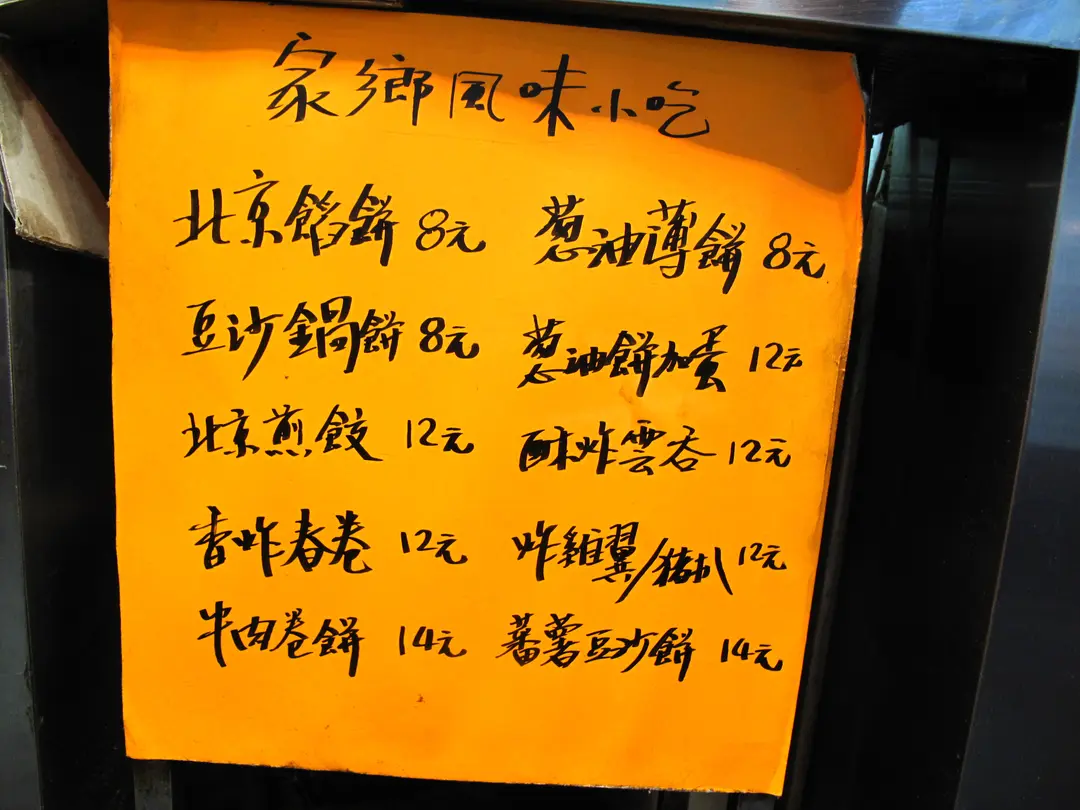 家鄉風味小吃
北京餡餅 8元 葱油薄餅 8元
豆沙鍋餅 8元 葱油餅加蛋 12元
北京煎餃 12元 酥炸雲吞 12元
香炸春卷 12元 炸雞翼/豬扒 12元
牛肉卷餅 14元 蕃薯豆沙餅 14元